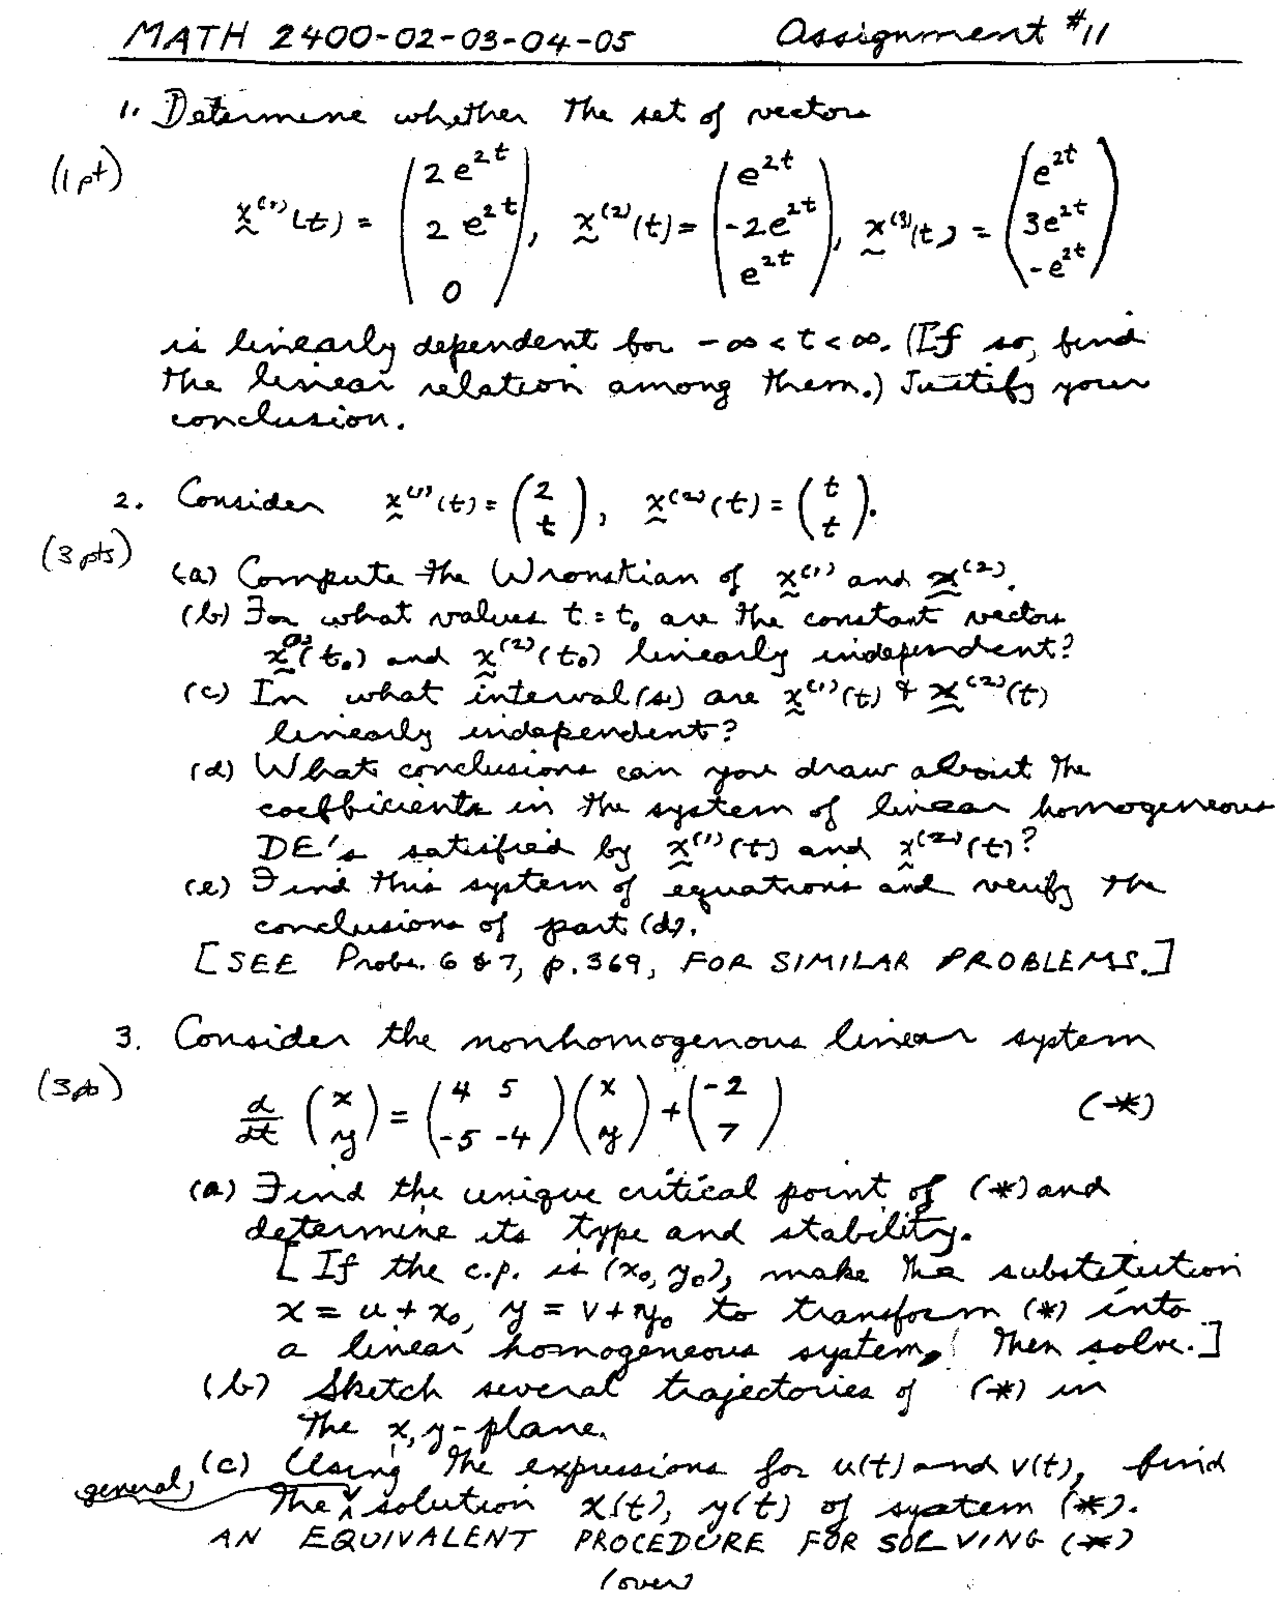 MATH 2400-02-03-04-05 Assignment #11
1. Determine whether the set of vectors
(1 pt)
x^(1)(t) = ( 2e^2t ; 2e^2t ; 0 ), x^(2)(t) = ( e^2t ; -2e^2t ; e^2t ), x^(3)(t) = ( e^2t ; 3e^2t ; -e^2t )
is linearly dependent for -∞ < t < ∞. (If so, find
the linear relation among them.) Justify your
conclusion.
2. Consider x^(1)(t) = ( 2 ; t ), x^(2)(t) = ( t ; t ).
(3 pts)
(a) Compute the Wronskian of x^(1) and x^(2).
(b) For what values t = t₀ are the constant vectors
x^(1)(t₀) and x^(2)(t₀) linearly independent?
(c) In what interval(s) are x^(1)(t) & x^(2)(t)
linearly independent?
(d) What conclusions can you draw about the
coefficients in the system of linear homogeneous
DE's satisfied by x^(1)(t) and x^(2)(t)?
(e) Find this system of equations and verify the
conclusions of part (d).
[SEE Probs. 6 & 7, p. 369, FOR SIMILAR PROBLEMS.]
3. Consider the nonhomogenous linear system
(3 pts)
d/dt ( x ; y ) = ( 4 5 ; -5 -4 ) ( x ; y ) + ( -2 ; 7 ) (*)
(a) Find the unique critical point of (*) and
determine its type and stability.
[If the c.p. is (x₀, y₀), make the substitution
x = u + x₀, y = v + y₀ to transform (*) into
a linear homogeneous system. Then solve.]
(b) Sketch several trajectories of (*) in
the x, y-plane.
(c) Using the expressions for u(t) and v(t), find
the general solution x(t), y(t) of system (*).
AN EQUIVALENT PROCEDURE FOR SOLVING (*)
(over)